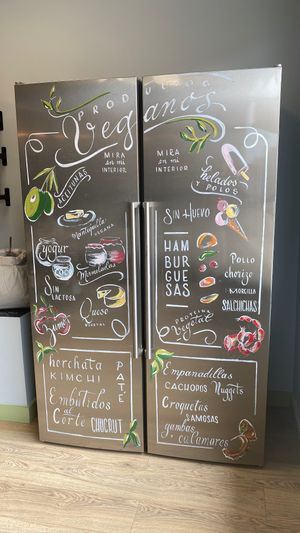 PRODUCTOS
Veganos
MIRA
en mi
INTERIOR
ACEITUNAS
Mantequilla
VEGANA
yogur
Mermeladas
SIN
LACTOSA
Queso
VEGETAL
Zumos
horchata
KIMCHI
PATÉ
Embutidos
al
Corte
CHUCRUT
MIRA
en mi
INTERIOR
helados
y POLOS
SIN HUEVO
HAM
BUR
GUE
SAS
Pollo
chorizo
MORCILLA
SALCHICHAS
PROTEINA
Vegetal
Empanadillas
CACHOPOS Nuggets
Croquetas
SAMOSAS
gambas
y calamares